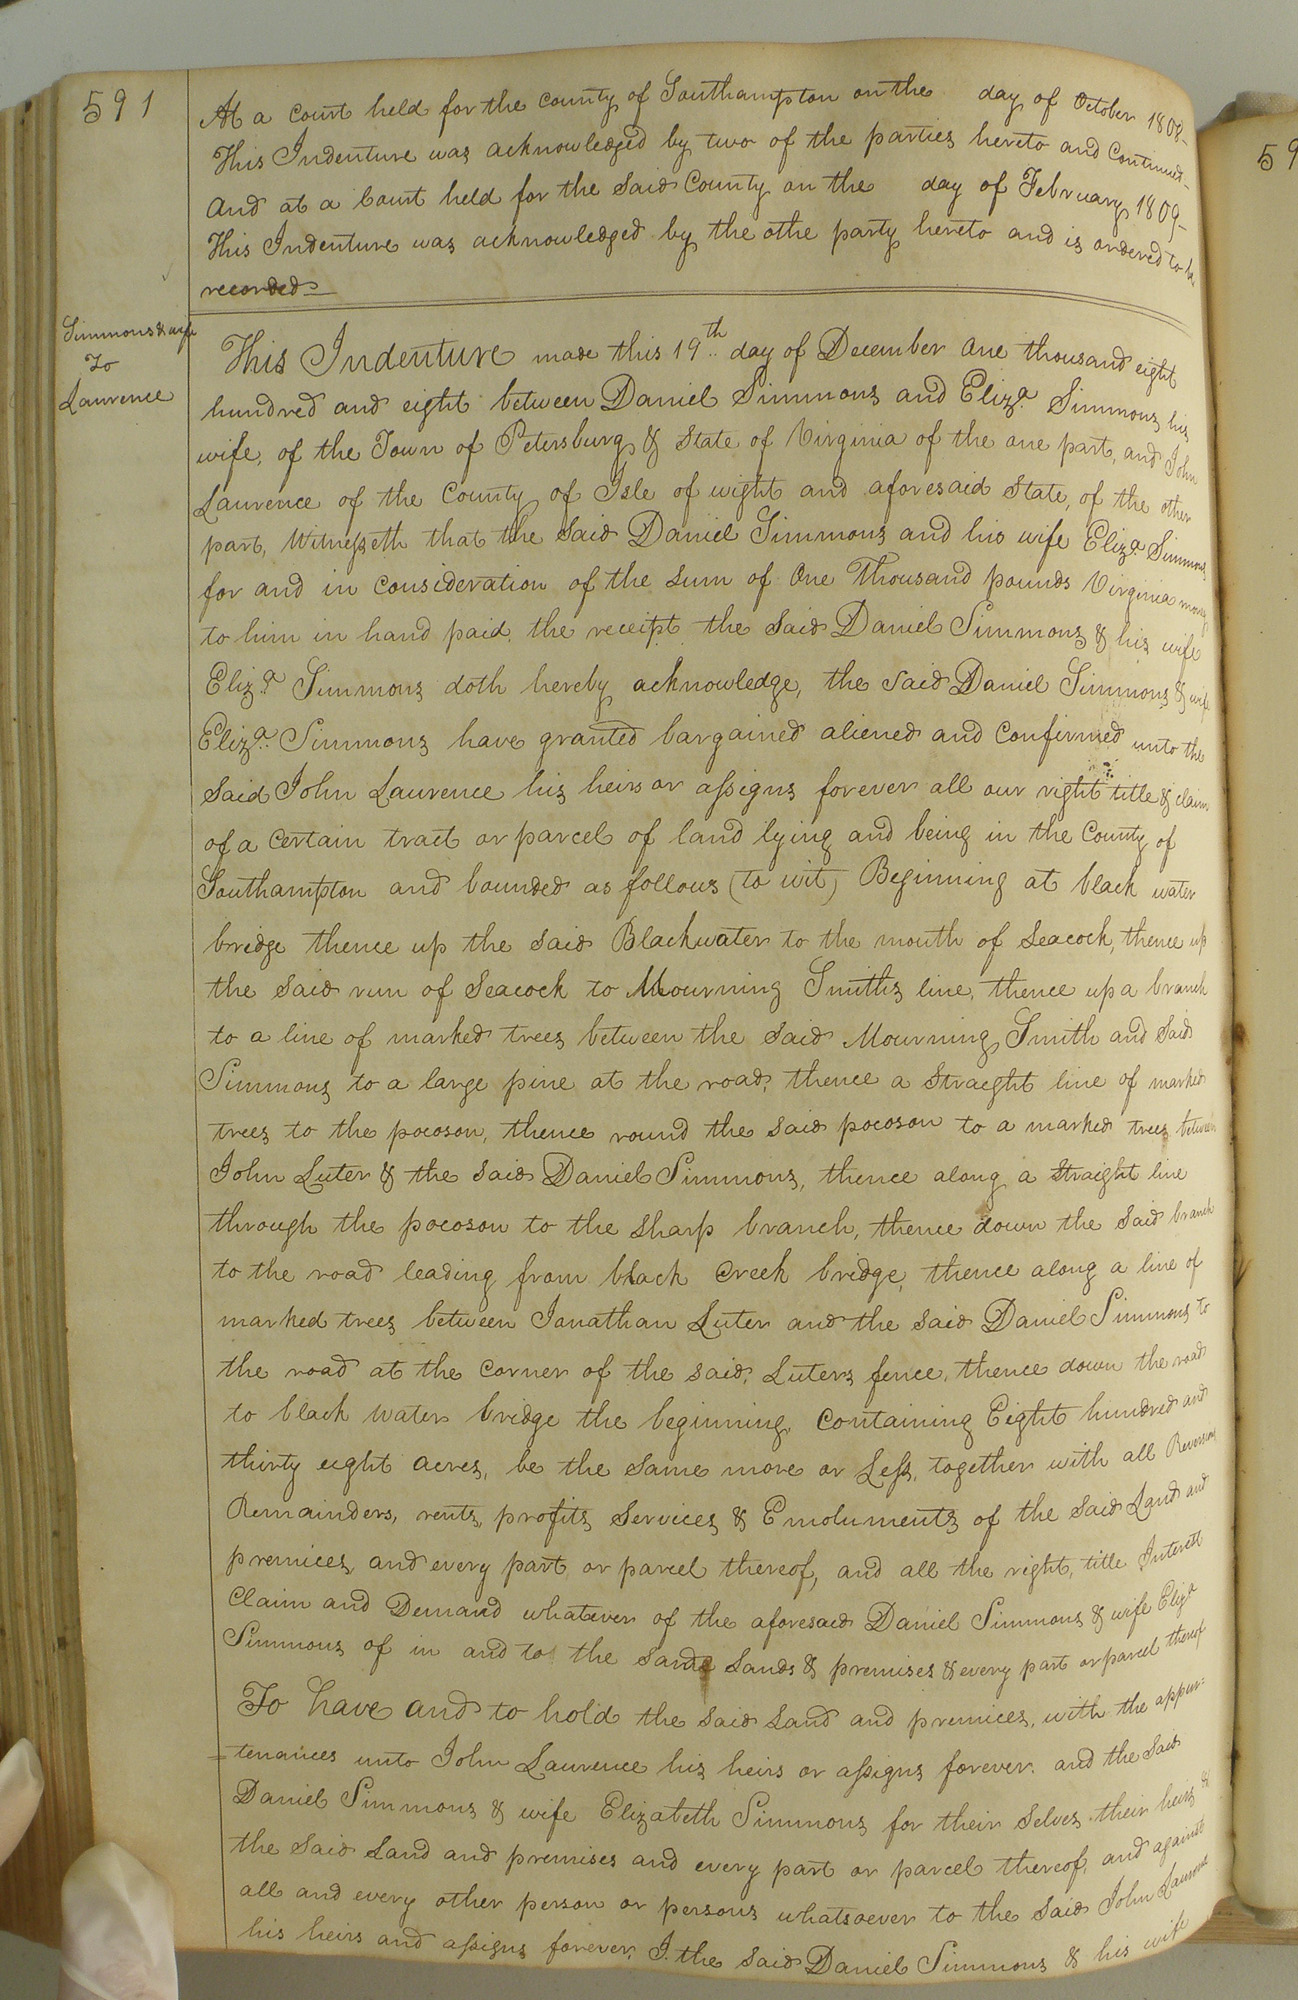 591
At a Court held for the County of Southampton on the day of October 1808
This Indenture was acknowledged by two of the parties hereto and Continued
And at a Court held for the said County on the day of February 1809
This Indenture was acknowledged by the othe party hereto and is ordered to be
recorded
Simmons & wife
To
Laurence
This Indenture made this 19th day of December One thousand eight
hundred and eight between Daniel Simmons and Eliza. Simmons his
wife, of the Town of Petersburg & State of Virginia of the one part, and John
Laurence of the County of Isle of wight and aforesaid State, of the other
part, Witnesseth that the said Daniel Simmons and his wife Eliza. Simmons
for and in Consideration of the sum of One Thousand pounds Virginia money
to him in hand paid, the receipt the said Daniel Simmons & his wife
Eliza. Simmons doth hereby acknowledge, the said Daniel Simmons & wife
Eliza. Simmons have granted bargained aliened and Confirmed unto the
said John Laurence his heirs or assigns forever all our right title & claim
of a Certain tract or parcel of land lying and being in the County of
Southampton and bounded as follows (to wit) Beginning at black water
bridge thence up the said Blackwater to the mouth of Seacock, thence up
the said run of Seacock to Mourning Smiths line, thence up a branch
to a line of marked trees between the said Mourning Smith and said
Simmons to a large pine at the road, thence a Straeght line of marked
trees to the pocoson, thence round the said pocoson to a marked trees between
John Luter & the said Daniel Simmons, thence along a Straight line
through the pocoson to the Sharp branch, thence down the said branch
to the road leading from black Creek bridge, thence along a line of
marked trees between Jonathan Luter and the said Daniel Simmons to
the road at the Corner of the said Luters fence, thence down the road
to black Water bridge the beginning, Containing Eight hundred and
thirty eight acres, be the same more or Less, together with all Reversions
Remainders, rents, profits Services & Emoluments of the said Land and
premices, and every part or parcel thereof, and all the right, title Interest
Claim and Demand whatever of the aforesaid Daniel Simmons & wife Eliza
Simmons of in and to the same Lands & premises & every part or parcel thereof
To have and to hold the said Land and premices, with the appur-
=tenances unto John Laurence his heirs or assigns forever. and the said
Daniel Simmons & wife Elizabeth Simmons for their Selves their heirs &
the said Land and premises and every part or parcel thereof, and against
all and every other person or persons whatsoever to the said John Laurence
his heirs and assigns forever. I. the said Daniel Simmons & his wife
59